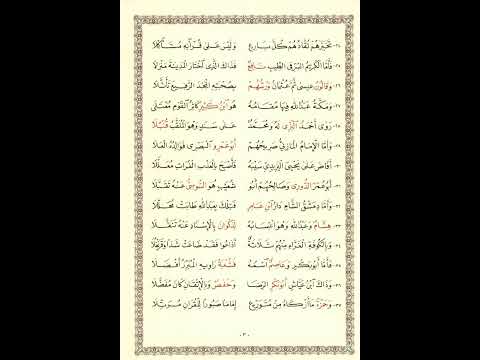 ٢٤- تَخَيَّرَهُمْ نُقَّادُهُمْ كُلَّ بَارِعٍ وَلَيْسَ عَلَى قُرْآنِهِ مُتَأَكِّلَا
٢٥- فَأَمَّا الْكَرِيمُ السِّرِّ فِي الطِّيبِ نَافِعٌ فَذَاكَ الَّذِي اخْتَارَ الْمَدِينَةَ مَنْزِلَا
٢٦- وَقَالُونُ عِيسَى ثُمَّ عُثْمَانُ وَرْشُهُمْ بِصُحْبَتِهِ الْمَجْدَ الرَّفِيعَ تَأَثَّلَا
٢٧- وَمَكَّةُ عَبْدُ اللهِ فِيهَا مُقَامُهُ هُوَ ابْنُ كَثِيرٍ كَاثِرُ الْقَوْمِ مُعْتَلَى
٢٨- رَوَى أَحْمَدُ الْبَزِّي لَهُ وَمُحَمَّدٌ عَلَى سَنَدٍ وَهْوَ الْمُلَقَّبُ قُنْبُلَا
٢٩- وَأَمَّا الْإِمَامُ الْمَازِنِيُّ صَرِيحُهُمْ أَبُو عَمْرٍو الْبَصْرِي فَوَالِدُهُ الْعَلَا
٣٠- أَفَاضَ عَلَى يَحْيَى الْيَزِيدِيِّ سَيْبَهُ فَأَصْبَحَ بِالْعَذْبِ الْفُرَاتِ مُعَلَّلَا
٣١- أَبُو عُمَرَ الدُّورِي وَصَالِحُهُمْ أَبُو شُعَيْبٍ هُوَ السُّوسِيُّ عَنْهُ تَقَبَّلَا
٣٢- وَأَمَّا دِمَشْقُ الشَّامِ دَارُ ابْنِ عَامِرٍ فَتِلْكَ بِعَبْدِ اللهِ طَابَتْ مُحَلَّلَا
٣٣- هِشَامٌ وَعَبْدُ اللهِ وَهْوَ انْتِسَابُهُ لِذَكْوَانَ بِالْإِسْنَادِ عَنْهُ تَنَقَّلَا
٣٤- وَبِالْكُوفَةِ الْغَرَّاءِ مِنْهُمْ ثَلَاثَةٌ أَذَاعُوا فَقَدْ ضَاعَتْ شَذًا وَقَرَنْفُلَا
٣٥- فَأَمَّا أَبُو بَكْرٍ وَعَاصِمٌ اسْمُهُ فَشُعْبَةُ رَاوِيهِ الْمُبَرِّزُ أَفْضَلَا
٣٦- وَذَاكَ ابْنُ عَيَّاشٍ أَبُو بَكْرٍ الرِّضَا وَحَفْصٌ وَبِالْإِتْقَانِ كَانَ مُفَضَّلَا
٣٧- وَحَمْزَةُ مَا أَزْكَاهُ مِنْ مُتَوَرِّعٍ إِمَامًا صَبُورًا لِلْقُرَانِ مُرَتِّلَا
٣